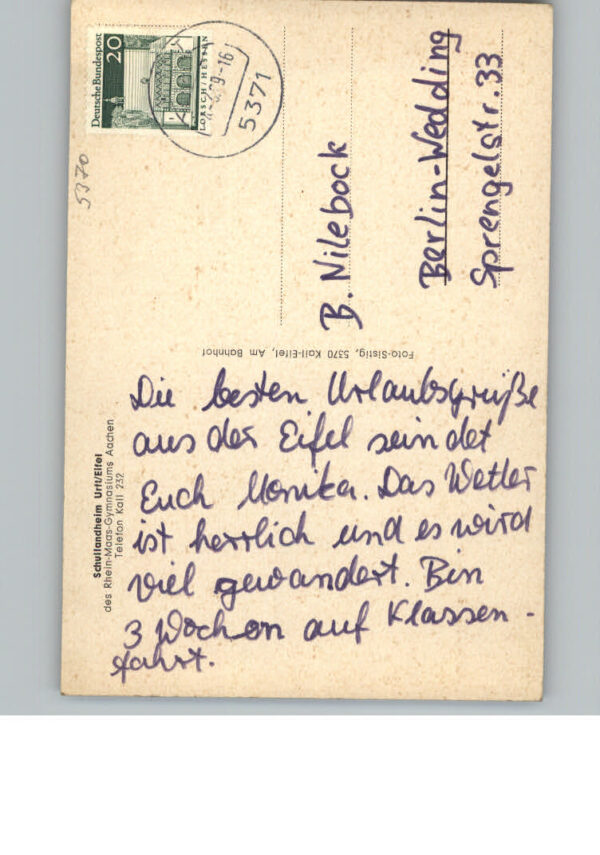 Deutsche Bundespost
20
LORSCH / HESSEN
5371
5370
B. Nilebock
Berlin-Wedding
Sprengelstr. 33
Foto-Sistig, 5370 Kall-Eifel, Am Bahnhof
Schullandheim Urft/Eifel
des Rhein-Maas-Gymnasiums Aachen
Telefon Kall 232
Die besten Urlaubsgrüße
aus der Eifel sendet
Euch Monika. Das Wetter
ist herrlich und es wird
viel gewandert. Bin
3 Wochen auf Klassen-
fahrt.